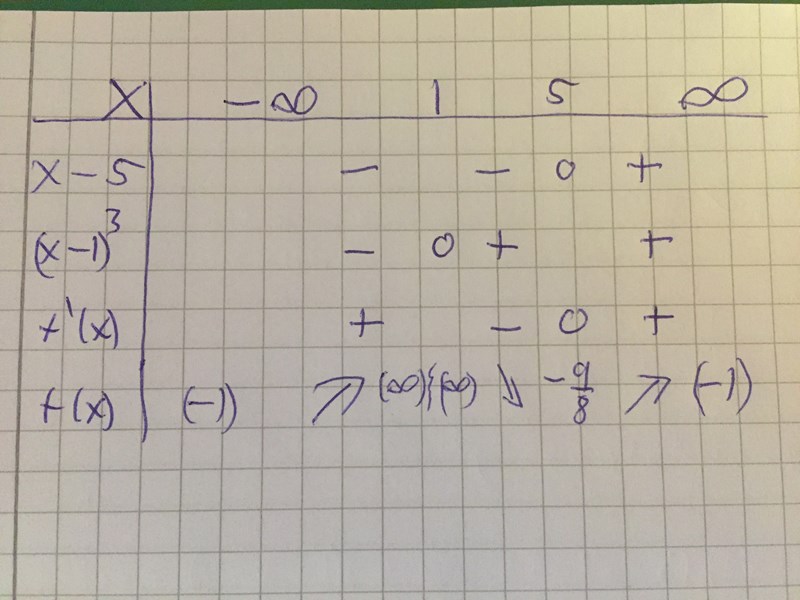 x -∞ 1 5 ∞
x-5 - - 0 +
(x-1)³ - 0 + +
f'(x) + - 0 +
f(x) (-1) ↗ (∞)}{(∞) ↘ -9/8 ↗ (-1)